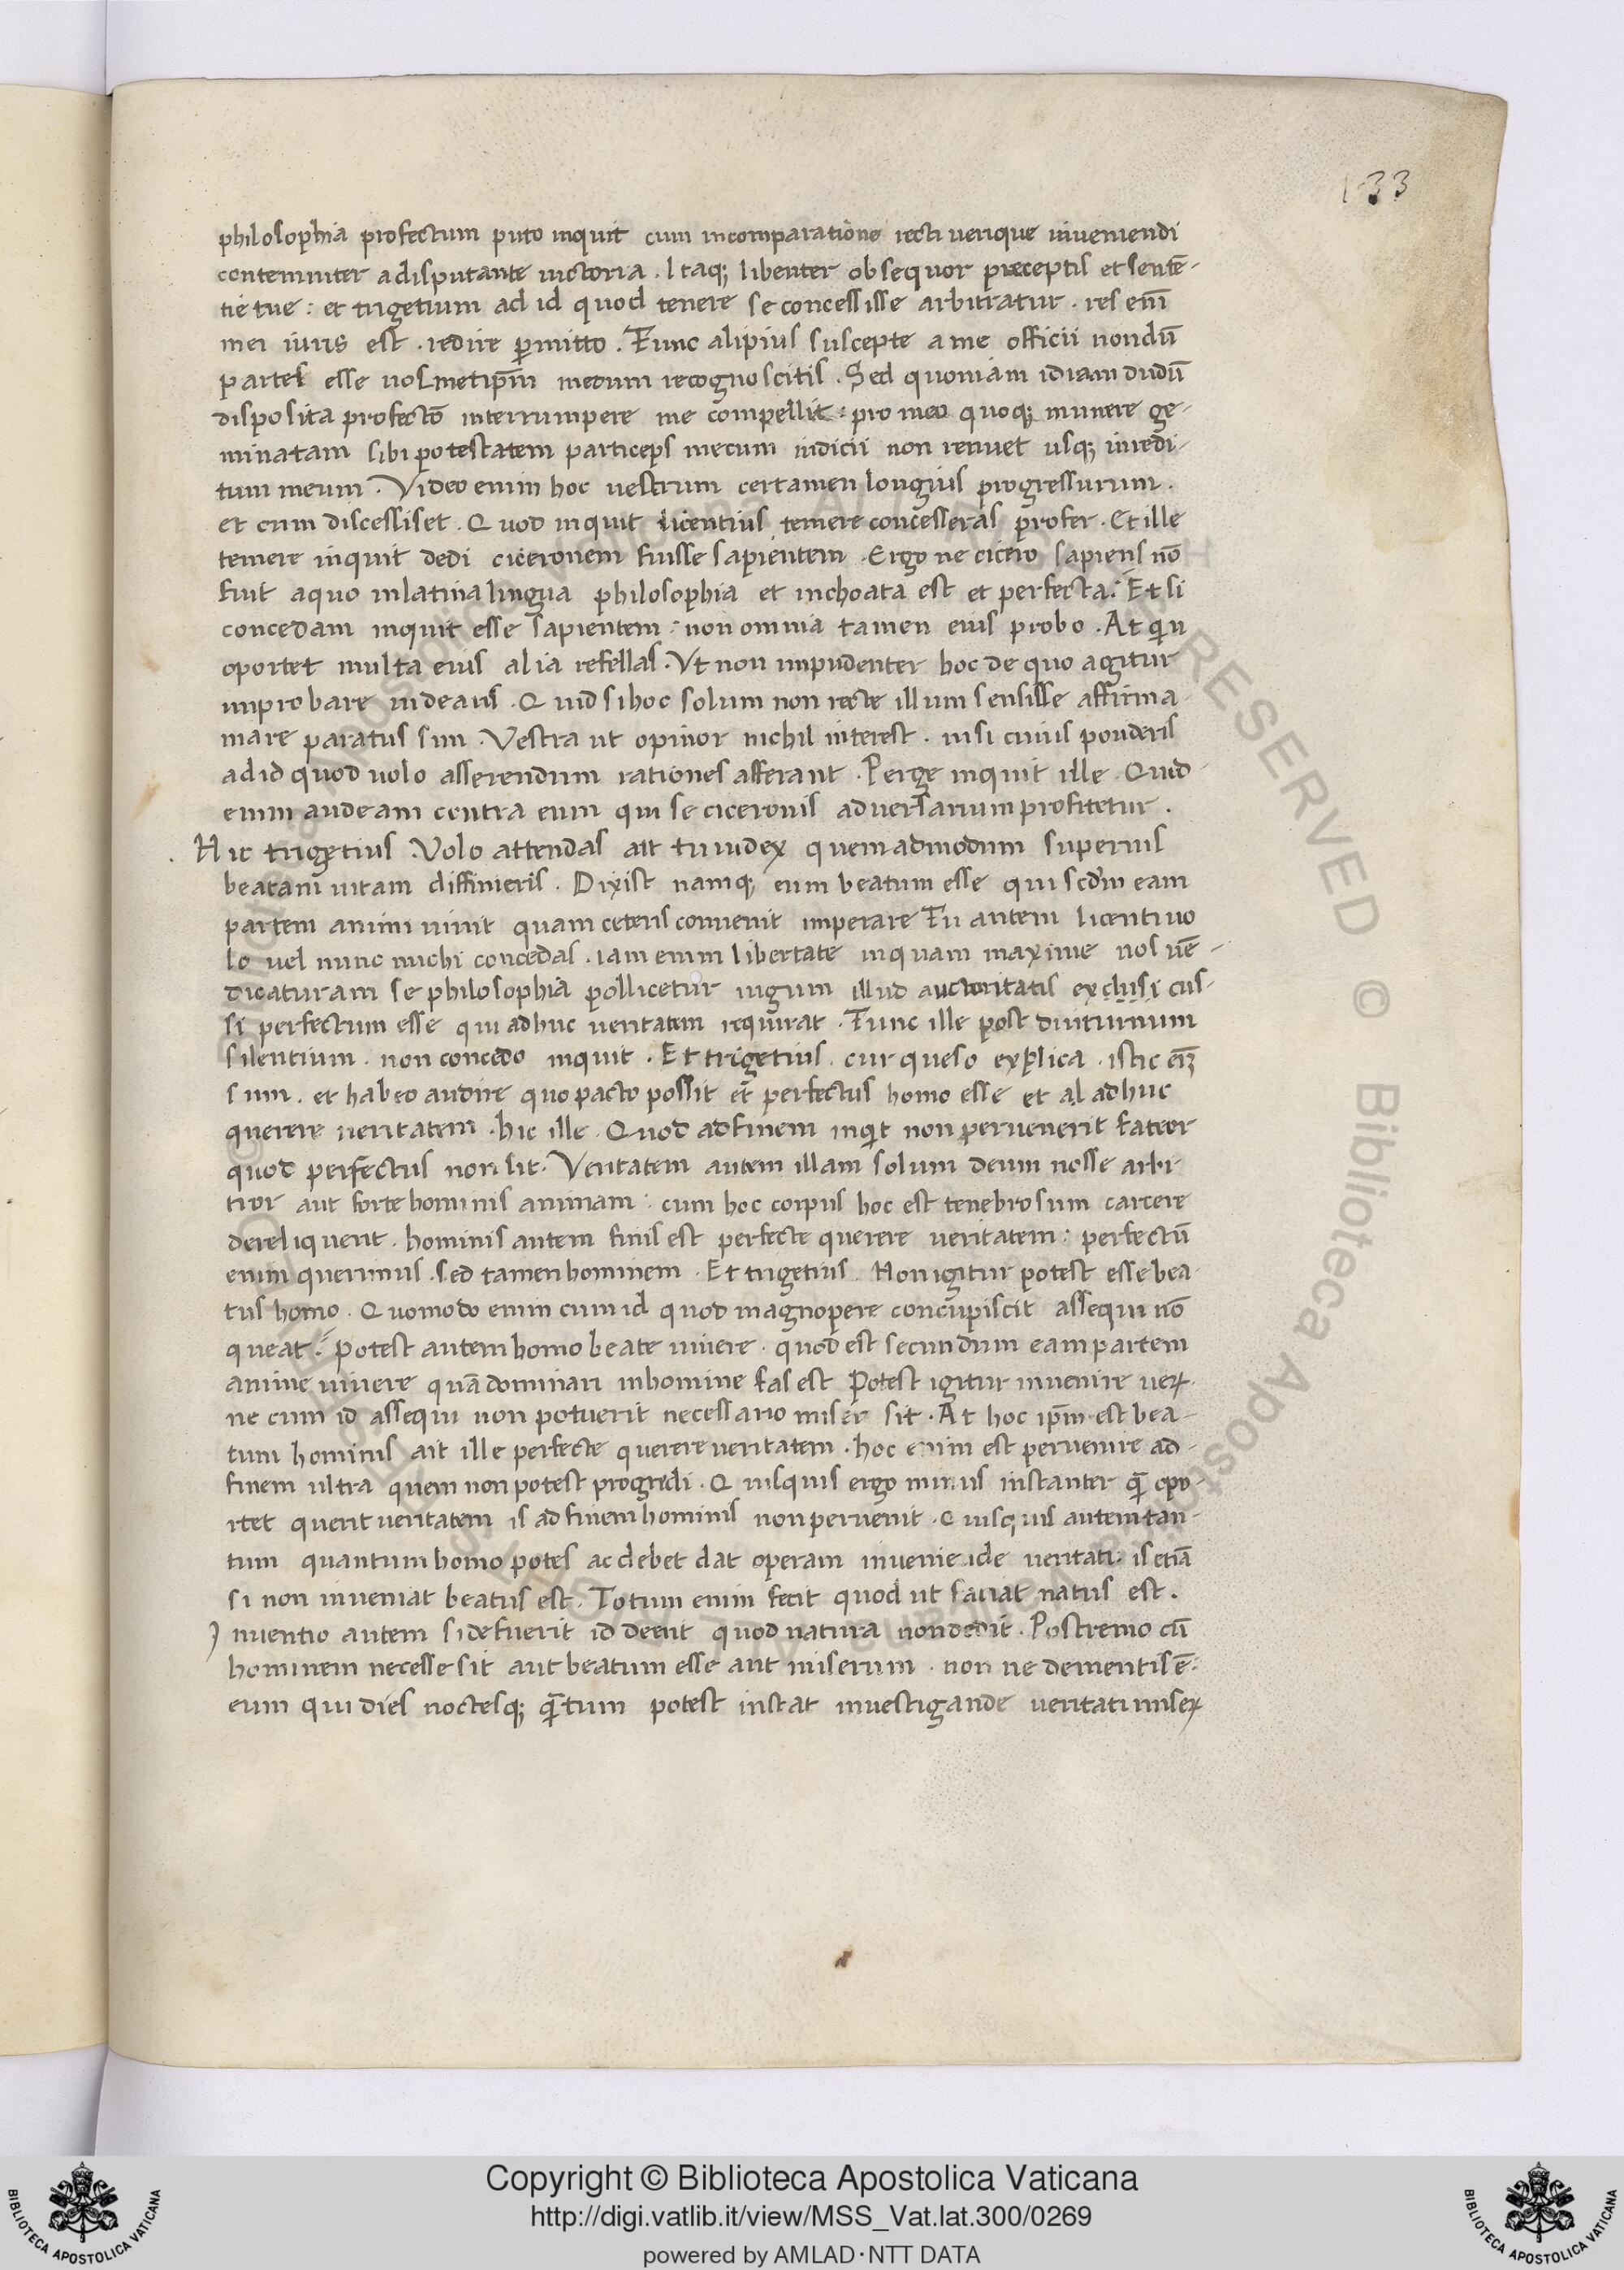 133
philosophia profectum puto inquit cum incomparatione recti verique inveniendi
contemniter adisputante victoria . Itaq; libenter obsequor preceptis et sentē-
tie tue : et trigetium ad id quod tenere se concessisse arbitratur . res enī
mei iuris est . redire p̄mitto . Tunc alipius suscepte a me officii nondū
partes esse uosmetip̄m mecum recognoscitis . Sed quoniam id iam dudū
disposita profectō interrumpere me compellit : pro meo quoq; munere ge-
minatam sibi potestatem particeps mecum iudicii non renuet usq; inredi-
tum meum . Video enim hoc uestrum certamen longius progressurum .
et cum discessiset . Quod inquit licentius temere concesseras profer . Et ille
temere inquit dedi ciceronem fuisse sapientem . Ergo ne cicero sapiens nō
fuit aquo inlatina lingua philosophia et inchoata est et perfecta : Et si
concedam inquit esse sapientem : non omnia tamen eius probo . At qui
oportet multa eius alia refellas . Ut non impudenter hoc de quo agitur
improbare uideans . Quid si hoc solum non recte illum sensisse affirma
mare paratus sim . Vestra ut opinor nichil interest . nisi cuius ponderis
ad id quod uolo asserendum rationes afferant . Perge inquit ille . Quid
enim audeam contra eum qui se ciceronis aduersarium profitetur .
Hic trigetius . Volo attendas ait tu iudex quemadmodum superius
beatam uitam diffinieris . Dixist namq; eum beatum esse qui scd̄m eam
partem animi uiuit quam ceteris conuenit imperare Tu autem licenti uo
lo uel nunc michi concedas . iam enim libertate inquam maxime nos uē-
dicaturam se philosophia pollicetur iugum illud auctoritatis exclusi cus-
si perfectum esse qui adhuc ueritatem requirat . Tunc ille post diuturnum
silentium . non concedo inquit . Et trigetius . cur queso explica . istic eīz
sum . et habeo audire quo pacto possit et perfectus homo esse et al adhuc
querere ueritatem . hic ille . Quod ad finem inq̇t non peruenerit fateor
quod perfectus non sit . Veritatem autem illam solum deum nosse arbi
tror aut forte hominis animam : cum hoc corpus hoc est tenebrosum carcere
dereliquerit . hominis autem finis est perfecte querere ueritatem : perfectū
enim querimus . sed tamen hominem . Et trigetius . Non igitur potest esse bea
tus homo . Quomodo enim cum id quod magnopere concupiscit assequi nō
queat : Potest autem homo beate uiuere . quod est secundum eam partem
anime uiuere quā dominari inhomine fas est Potest igitur inuenire ueꝝ .
ne cum id assequi non potuerit necessario miser sit . At hoc ip̄m est bea-
tum hominis ait ille perfecte querere ueritatem . hoc enim est peruenire ad-
finem ultra quem non potest progredi . Quisquis ergo minus instanter q̄ opo-
rtet querit ueritatem is ad finem hominis non peruenit . Quisquis autem tan-
tum quantum homo potes ac debet dat operam inueniende ueritati : is etiā
si non inueniat beatus est . Totum enim fecit quod ut faciat natus est .
Inuentio autem si defuerit id deerit quod natura non dedit . Postremo cū
hominem necesse sit aut beatum esse aut miserum . non ne dementis ē :
eum qui dies noctesq; q̄tum potest instat inuestigande ueritati miseꝝ
Copyright © Biblioteca Apostolica Vaticana
http://digi.vatlib.it/view/MSS_Vat.lat.300/0269
powered by AMLAD·NTT DATA
BIBLIOTECA APOSTOLICA VATICANA
BIBLIOTECA APOSTOLICA VATICANA